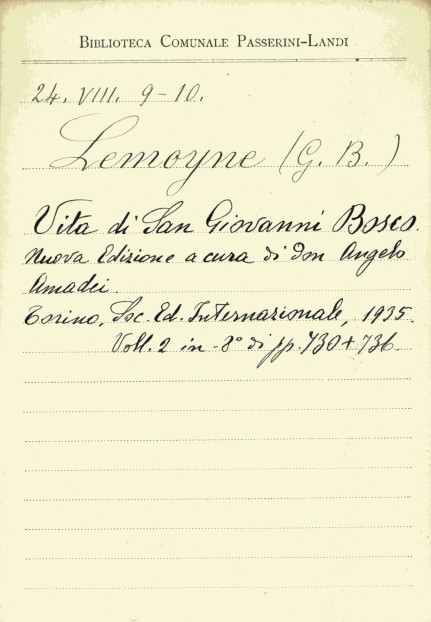 BIBLIOTECA COMUNALE PASSERINI-LANDI
24. VIII. 9-10.
Lemoyne (G. B.)
Vita di San Giovanni Bosco.
Nuova Edizione a cura di Don Angelo
Amadei.
Torino, Soc. Ed. Internazionale, 1935.
Voll. 2 in-8° di pp. 730+736.